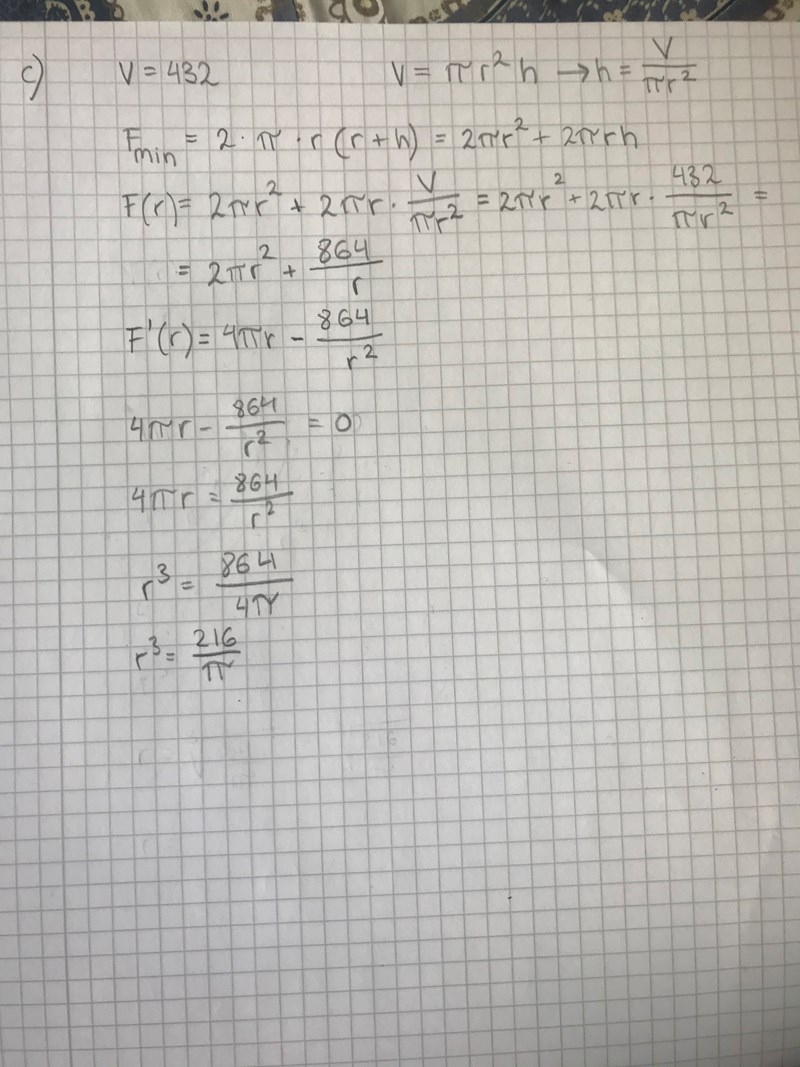 c) V = 432 V = πr² h → h = V/πr²
Fmin = 2 · π · r (r + h) = 2πr² + 2πrh
F(r) = 2πr² + 2πr · V/πr² = 2πr² + 2πr · 432/πr² =
= 2πr² + 864/r
F'(r) = 4πr - 864/r²
4πr - 864/r² = 0
4πr = 864/r²
r³ = 864/4π
r³ = 216/π